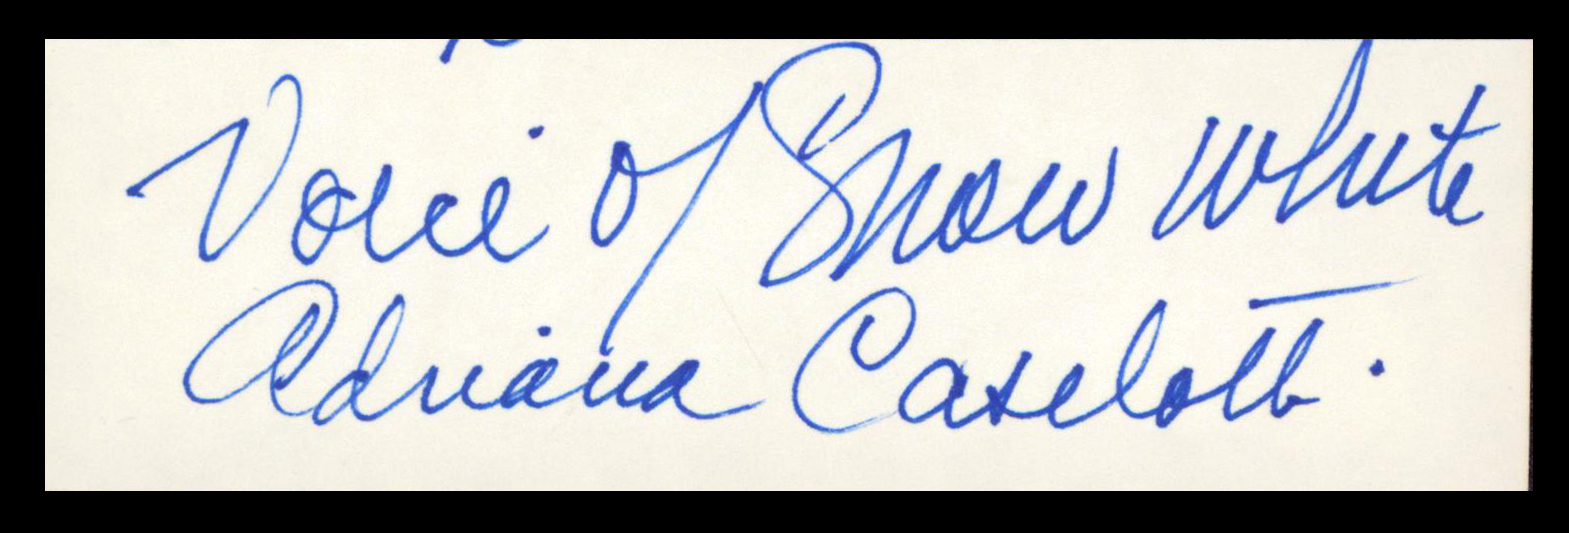 Voice of Snow White
Adriana Caselotti